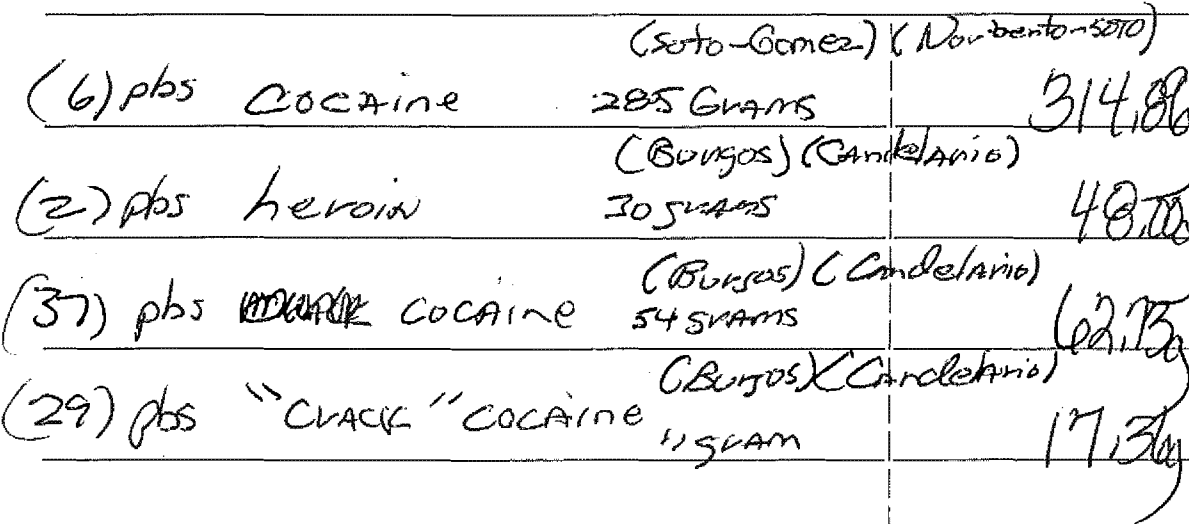 (Soto-Gomez) (Norberto-Soto)
(6) pbs Cocaine 285 Grams 314.86
(Burgos) (Candelario)
(2) pbs heroin 30 grams
(Burgos) (Candelario)
(37) pbs cocaine 54 grams 62.75g
(Burgos) (Candelario)
(29) pbs "CRACK" Cocaine 11 gram 17.36g